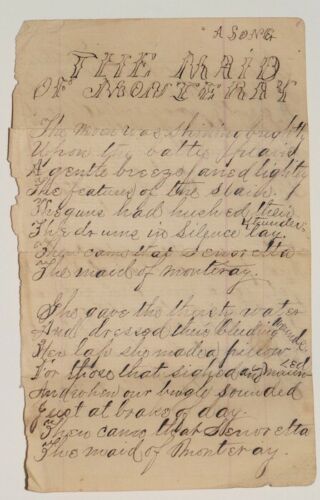 A SONG
THE MAID
OF MONTERAY
The moon was shining brightly
Upon the battle plains
A gentle breeze faned lightly
The features of the slain
The guns had hushed their thunder
The drums in silence lay.
Then came that Senoretta
The maid of Monteray.
She gave the thirsty water
And dressed their bleeding wounds
Her lap she made a pillow
For those that sighed and
And when our bugle sounded
Just at brake of day.
Then came that Senoretta
The maid of Monteray.